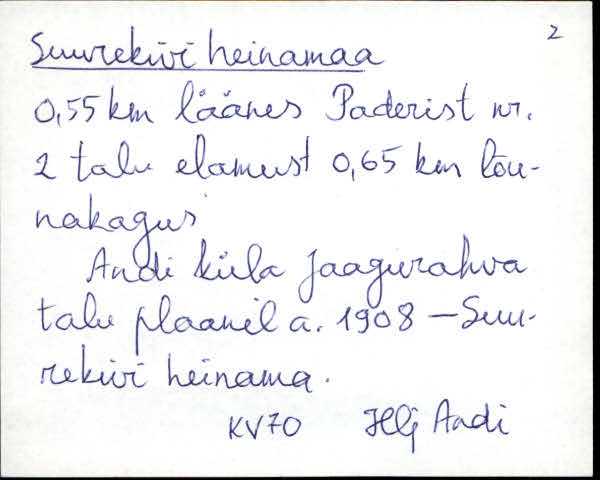 2
Suurekivi heinamaa
0,55 km läänes Paderist nr.
2 talu elamust 0,65 km lõu-
nakagus
Andi küla Jaagurahva
talu plaanil a. 1908 – Suu-
rekivi heinama.
KV70 Hlj Andi